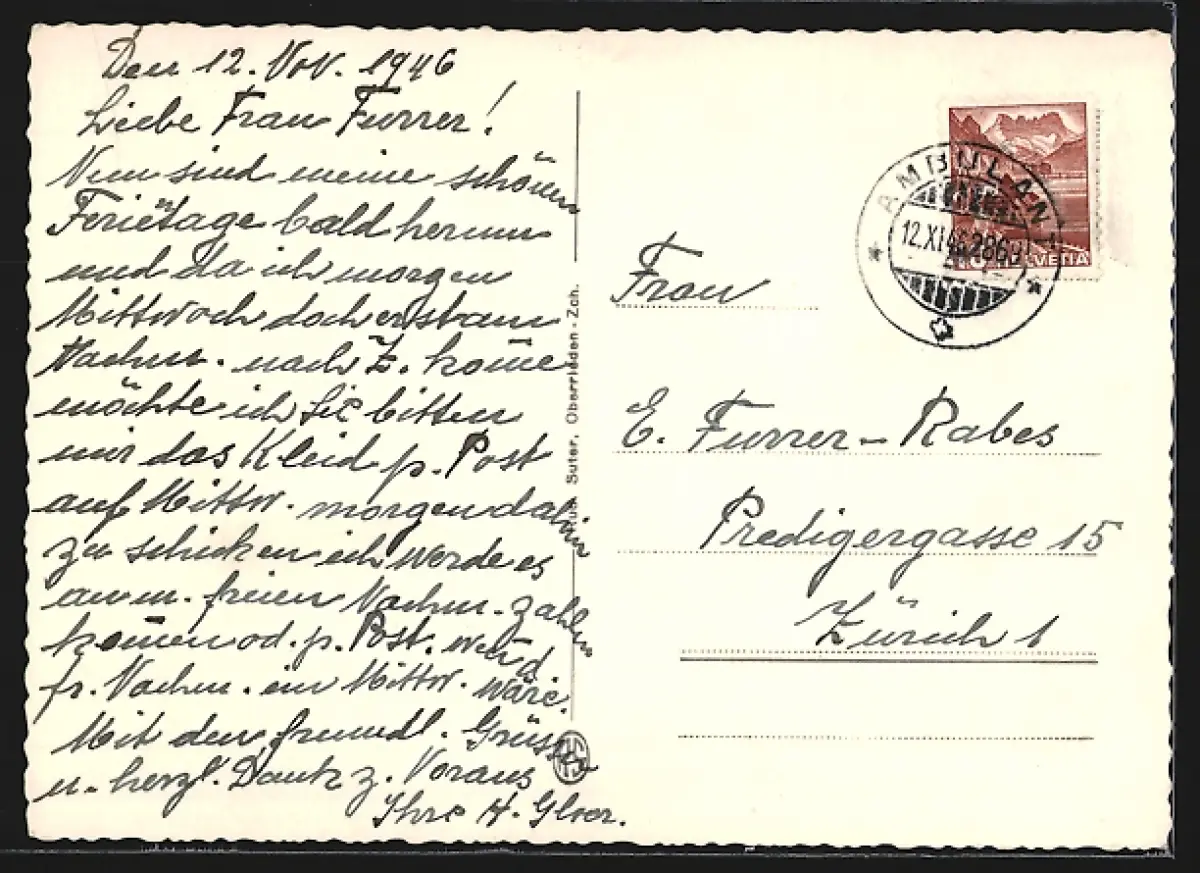 Den 12. Nov. 1946
Liebe Frau Furrer!
Nun sind meine schönen
Ferientage bald herum
und da ich morgen
Mittwoch doch erst am
Nachm. nach Z. kom̄e
möchte ich Sie bitten
mir das Kleid p. Post
auf Mittw. morgen dahin
zu schicken ich werde es
an m. freien Nachm. zahlen
kom̄en od. p. Post. wen̄ d.
fr. Nachm. ein Mittw. wäre.
Mit den freundl. Grüssen
u. herzl. Dank z. Voraus
Ihre H.
Suter, Oberrieden - Zch.
AMBULANT
12.XI.46
HELVETIA
Frau
E. Furrer-Rabes
Predigergasse 15
Zürich 1